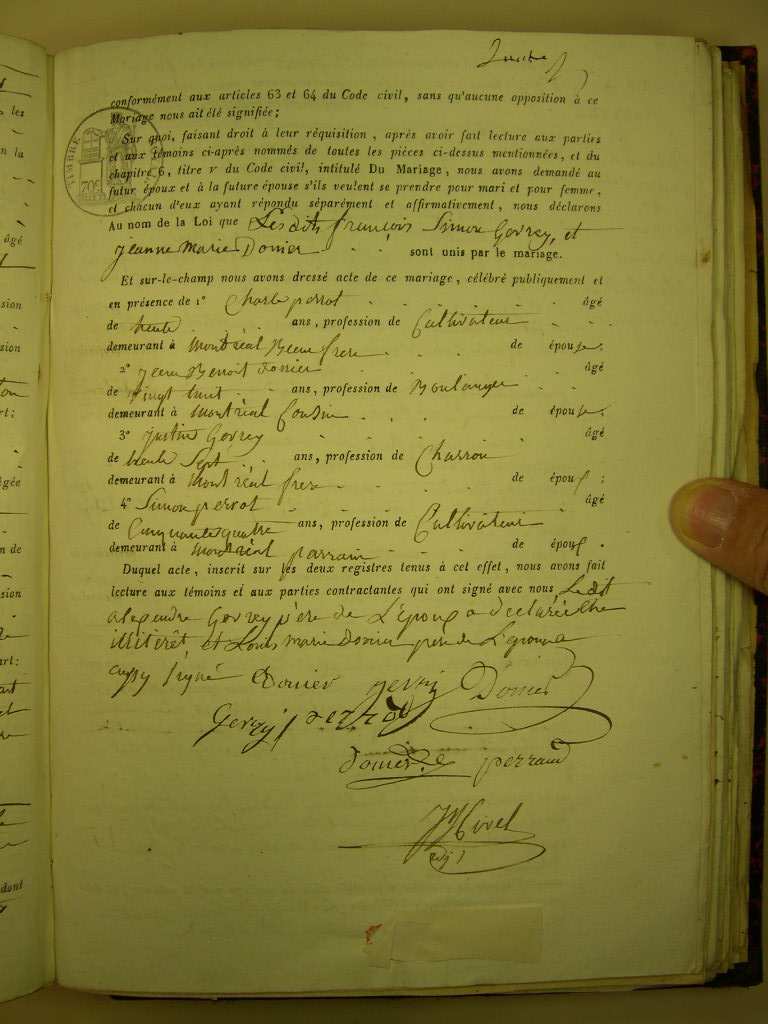 conformément aux articles 63 et 64 du Code civil, sans qu'aucune opposition à ce
Mariage nous ait été signifiée;
Sur quoi, faisant droit à leur réquisition, après avoir fait lecture aux parties
et aux témoins ci-après nommés de toutes les pièces ci-dessus mentionnées, et du
chapitre 6, titre v du Code civil, intitulé Du Mariage, nous avons demandé au
futur époux et à la future épouse s'ils veulent se prendre pour mari et pour femme,
et chacun d'eux ayant répondu séparément et affirmativement, nous déclarons
Au nom de la Loi que Lesdits françois Simon Govrey, et
Jeanne Marie Donier sont unis par le mariage.
Et sur-le-champ nous avons dressé acte de ce mariage, célébré publiquement et
en présence de 1° Charle perrot âgé
de trente ans, profession de Cultivateur
demeurant à Montréal Beau frere de épouse.
2° Jean Benoit Donier âgé
de vingt huit ans, profession de Boulanger
demeurant à Montréal Cousin de épouse.
3° Justin Govrey âgé
de trente Sept ans, profession de Charron
demeurant à Montréal frere de épou ;
4° Simon perrot âgé
de Cinquante quatre ans, profession de Cultivateur
demeurant à Montréal parrain de épou .
Duquel acte, inscrit sur les deux registres tenus à cet effet, nous avons fait
lecture aux témoins et aux parties contractantes qui ont signé avec nous Ledit
Govrey père de L'Epoux a declaré être
illiteré, et Louis Marie Donier père de L'épouse
aussy signé Donier Donier
perrot
Donier perraud
TIMBRE